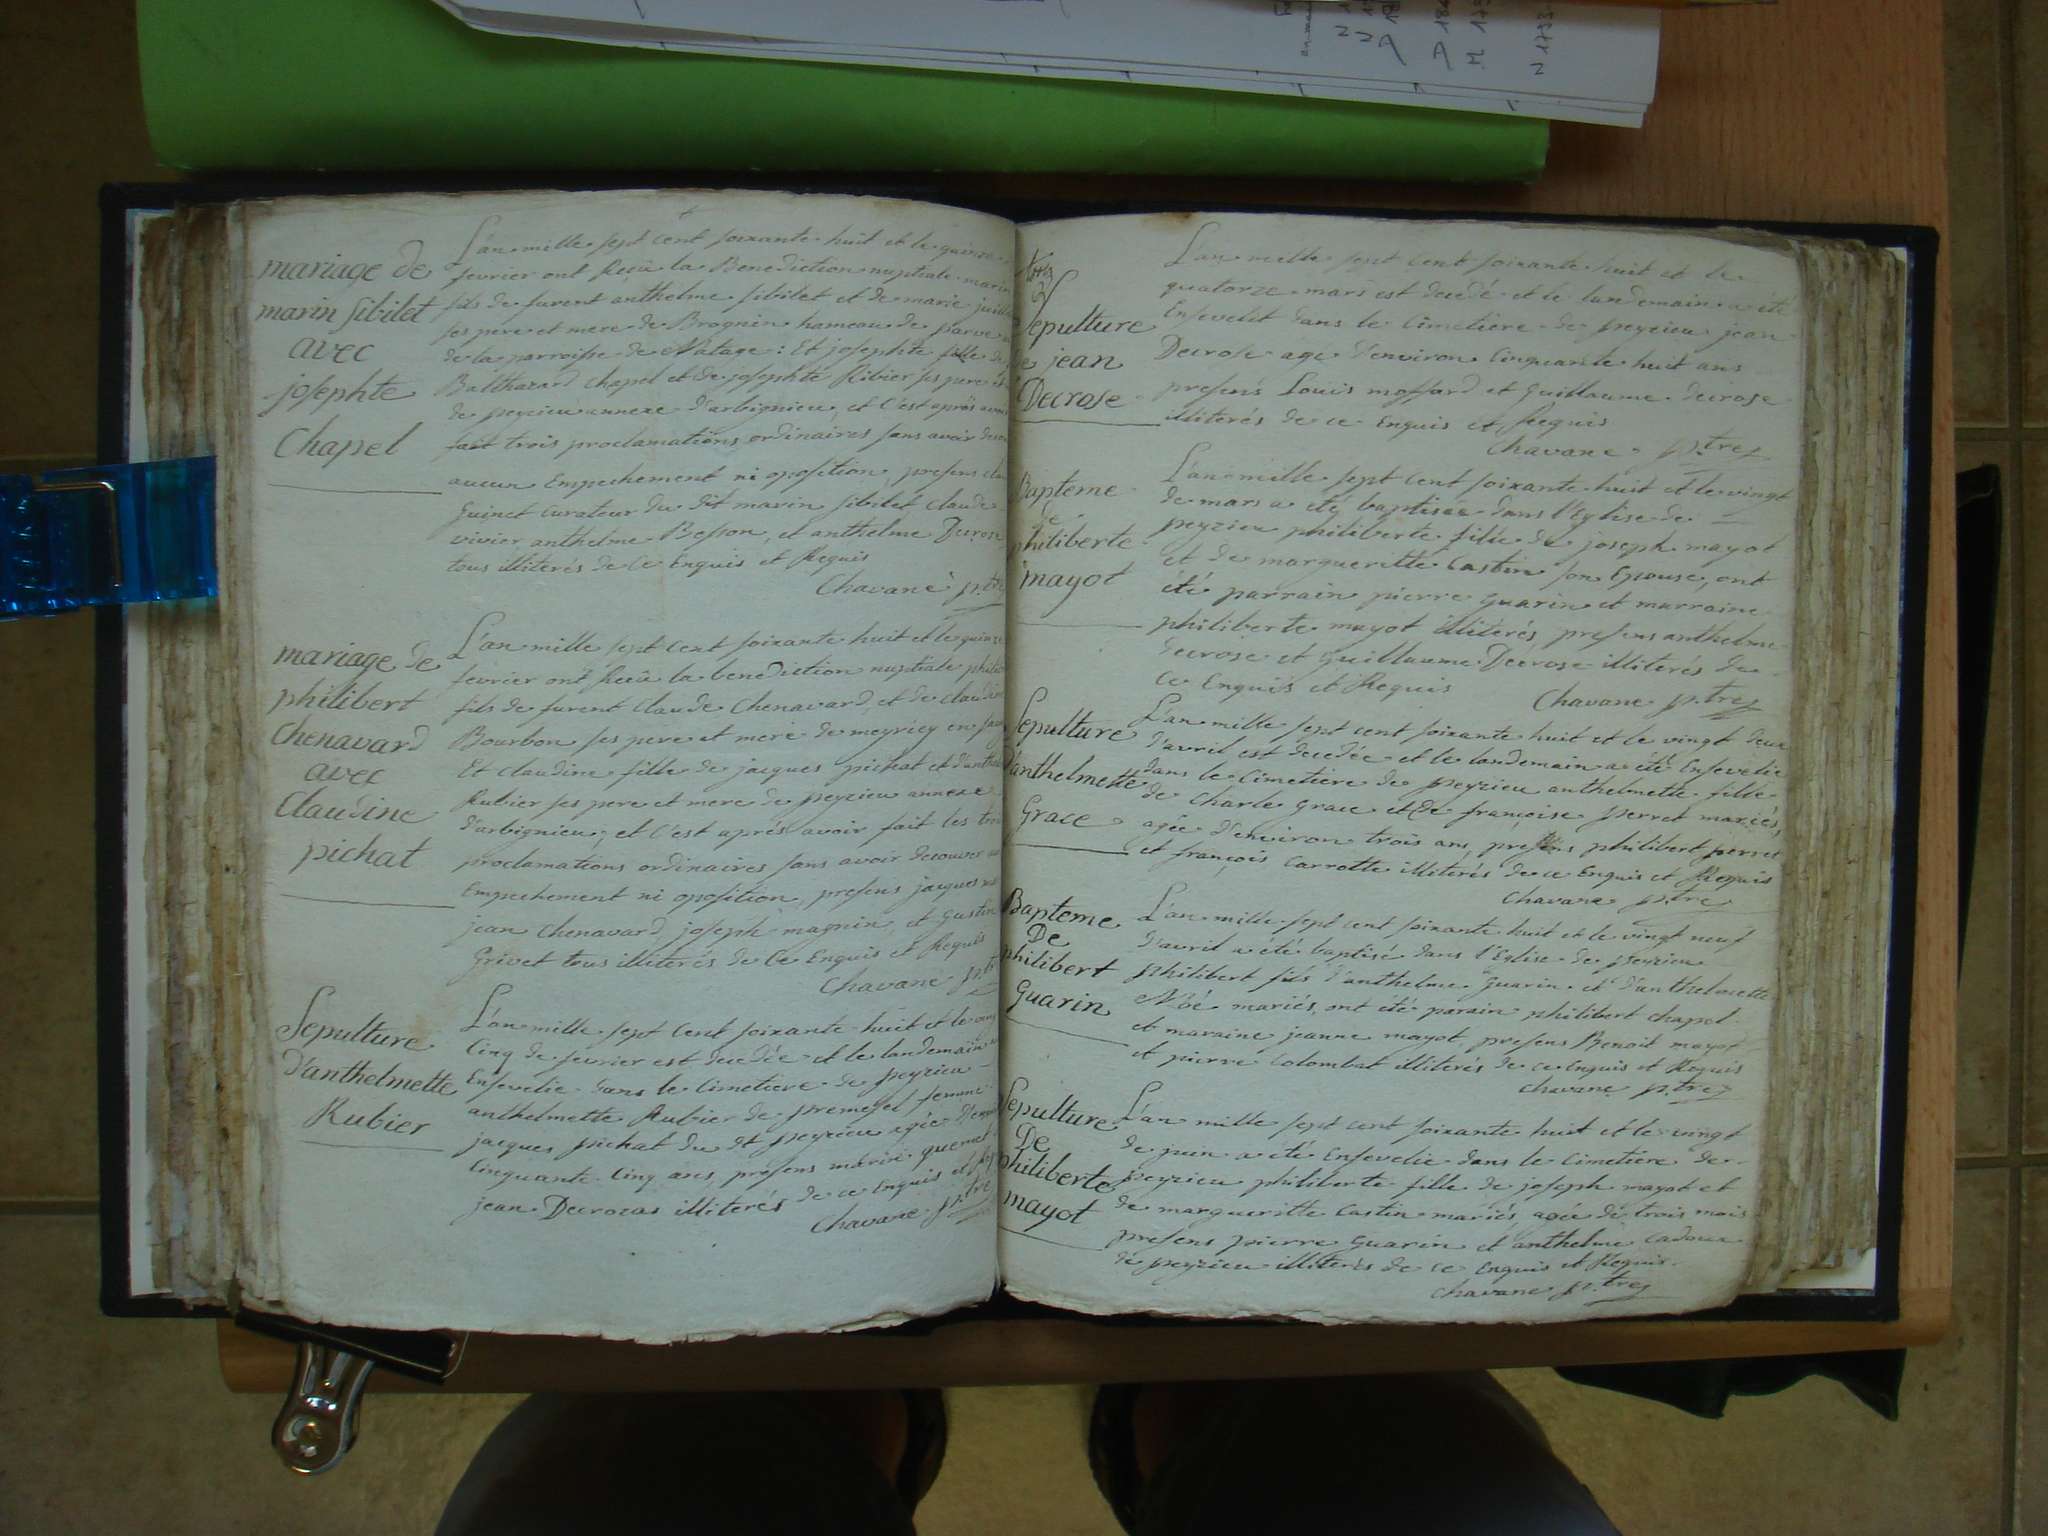 mariage de
marin sibilet
avec
josephte
Chapel
L'an mille sept cent soixante huit et le quinze
fevrier ont Reçû la Benediction nuptiale marin
fils de furent anthelme sibilet et de marie
ses pere et mere de Brognin hameau de parve
de la parroisse de Natage: Et josephte fille de
Balthazard Chapel et de josephte Ribier ses pere et
de peyzieu annexe d'arbignieu, et C'est après avoir
fait trois proclamations ordinaires sans avoir
aucun Empechement ni oposition, presens
Guinet Curateur du dit marin sibilet Claude
vivier, anthelme Besson, et anthelme Decrose
tous illiterés de Ce Enquis et Requis
Chavane p.tre
mariage de
philibert
Chenavard
avec
Claudine
pichat
L'an mille sept cent soixante huit et le quinze
fevrier ont Reçû la benediction nuptiale
fils de furent Claude Chenavard, et de claudine
Bourbon ses pere et mere de meyriey en
Et claudine fille de jacques pichat et
Rubier ses pere et mere de peyzieu annexe
d'arbignieu, et C'est aprés avoir fait les trois
proclamations ordinaires sans avoir decouver
Empechement ni oposition, presens jacques
jean Chenavard, joseph magnin, et Gustin
Grivet tous illiterés de Ce Enquis et Requis
Chavane p.tre
Sepulture
d'anthelmette
Rubier
L'an mille sept cent soixante huit et le vingt
Cinq de fevrier est decedée et le landemain a
Ensevelie dans le Cimetiere de peyzieu
anthelmette Rubier de premeysel femme
jacques pichat du dt peyzieu agée
Cinquante Cinq ans, présens marin quenet
jean Decrozas illiterés de ce Enquis et
Chavane p.tre
Sepulture
de jean
Decrose
L'an mille sept cent soixante huit et le
quatorze mars est decedé et le landemain a été
Ensevelit dans le Cimetiere de peyzieu jean
Decrose age d'environ Cinquante huit ans
presens Louis mossard et Guillaume decrose
illiterés de ce Enquis et Requis
Chavane p.tre
Bapteme
de
philiberte
mayot
L'an mille sept cent soixante huit et le vingt
de mars a été baptisée dans l'Eglise de
peyzieu philiberte fille de joseph mayot
et de margueritte Castin son Epouse, ont
été parrain pierre Guarin et marraine
philiberte mayot illiterés presens anthelme
decrose et Guillaume Decrose illiterés de
Ce Enquis et Requis
Chavane p.tre
Sepulture
d'anthelmette
Grace
L'an mille sept cent soixante huit et le vingt deux
d'avril est decedée et le landemain a été Ensevelie
dans le Cimetiere de peyzieu anthelmette fille
de Charle Grace et de françoise perret mariés,
agée d'environ trois ans, presens philibert perret
et françois Carrotte illitérés de ce Enquis et Requis
Chavane p.tre
Bapteme
De
philibert
Guarin
L'an mille sept cent soixante huit et le vingt neuf
d'avril a été baptisé dans l'Eglise de peyzieu
philibert fils d'anthelme Guarin et d'anthelmette
Noé mariés, ont été parain philibert chapel
et maraine jeanne mayot, presens Benoit mayot
et pierre Colombat illiterés de ce Enquis et Requis
Chavane p.tre
Sepulture
De
philiberte
mayot
L'an mille sept cent soixante huit et le vingt
de juin a été Ensevelie dans le Cimetiere de
peyzieu philiberte fille de joseph mayot et
de margueritte Castin mariés, agée de trois mois
presens pierre Guarin et anthelme Cadoux
de peyzieu illiterés de ce Enquis et Requis.
Chavane p.tre